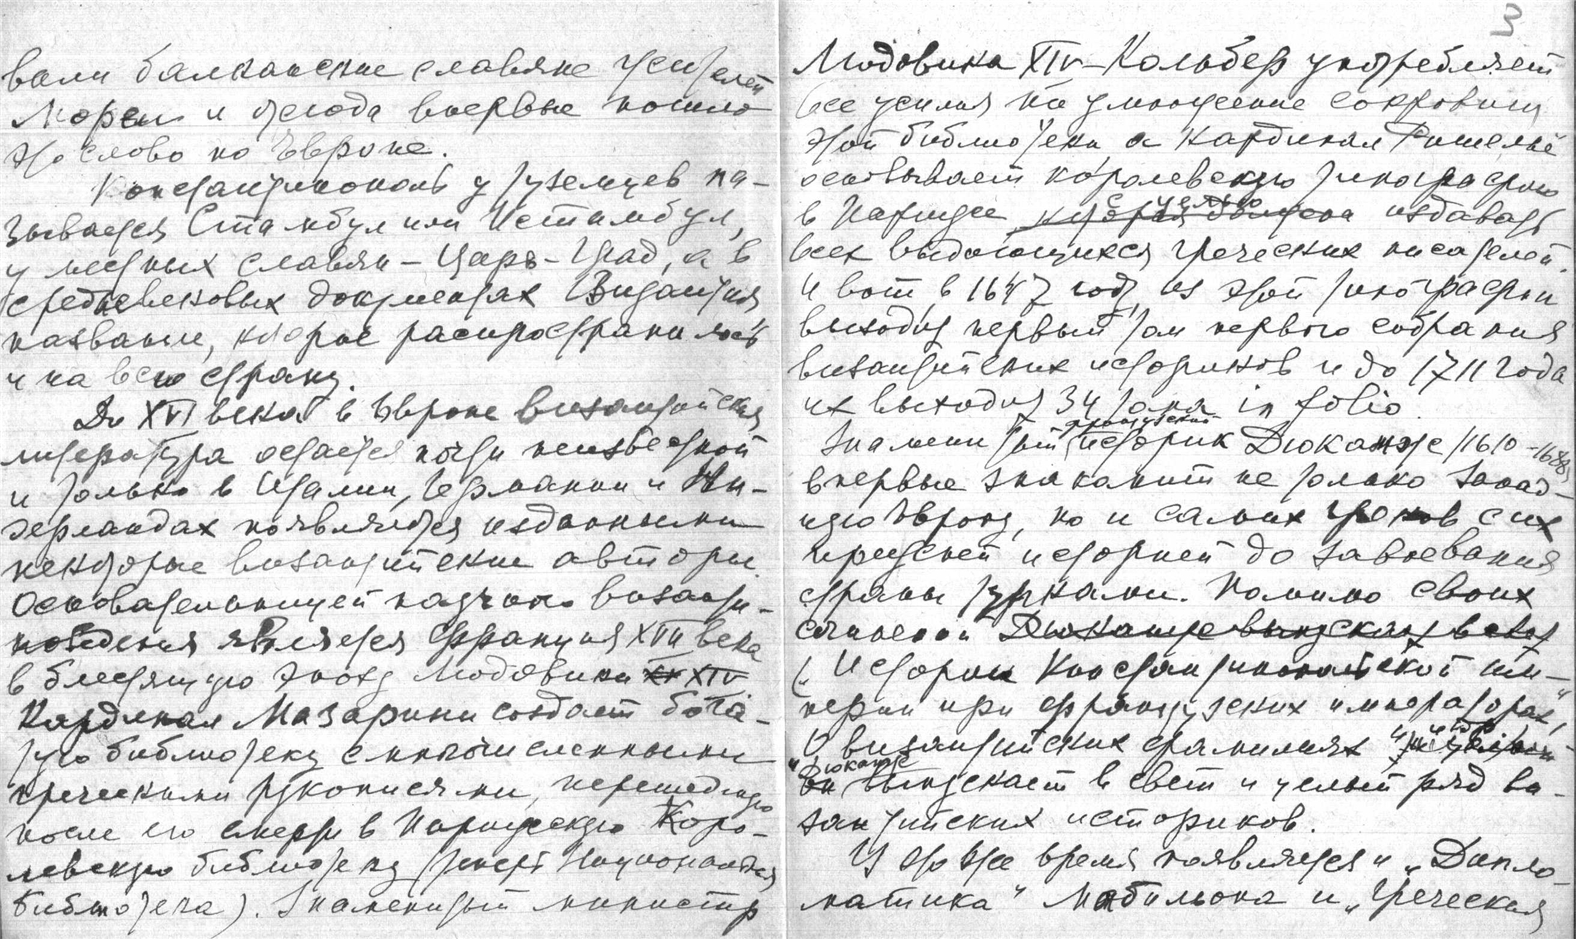 вали балканские славяне жителей
Мореи и отсюда впервые пошло
это слово по Европе.
Константинополь у туземцев на-
зывается Стамбул или Истамбул,
у местных славян – Царь-Град, а в
средневековых документах Византия
название, которое распространилось
и на всю страну.
До XVI века в Европе византийская
литература остается почти неизвестной
и только в Италии, Германии и Ни-
дерландах появляются изданными
некоторые византийские авторы.
Основательницей научного византи-
новедения является Франция XVII века
в блестящую эпоху Людовика XIV
Кардинал Мазарини создает бога-
тую библиотеку с многочисленными
греческими рукописями, перешедшую
после его смерти в Парижскую Коро-
левскую библиотеку (теперь Национальная
библиотека). Знаменитый министр
3
Людовика XIV – Кольбер употребляет
все усилия на умножение сокровищ
этой библиотеки а кардинал Ришелье
основывает королевскую типографию
в Париже с целью издавать
всех выдающихся греческих писателей.
И вот в 1647 году, из этой типографии
выходит первый том первого собрания
византийских историков и до 1711 года
их выходит 34 тома in folio.
Знаменитый французский историк Дюканже /1610-1688/
впервые знакомит не только Запад-
ную Европу, но и самих греков с их
прежней историей до завоевания
страны турками. Помимо своих
сочинений Дюканже выпускает в свет
(„Истории Константинопольской им-
перии при французских императорах",
„О византийских фамилиях" и др
Дюканже выпускает в свет и целый ряд ви-
зантийских историков.
В это же время появляется и „Дипло-
матика" Мабильона и „Греческая